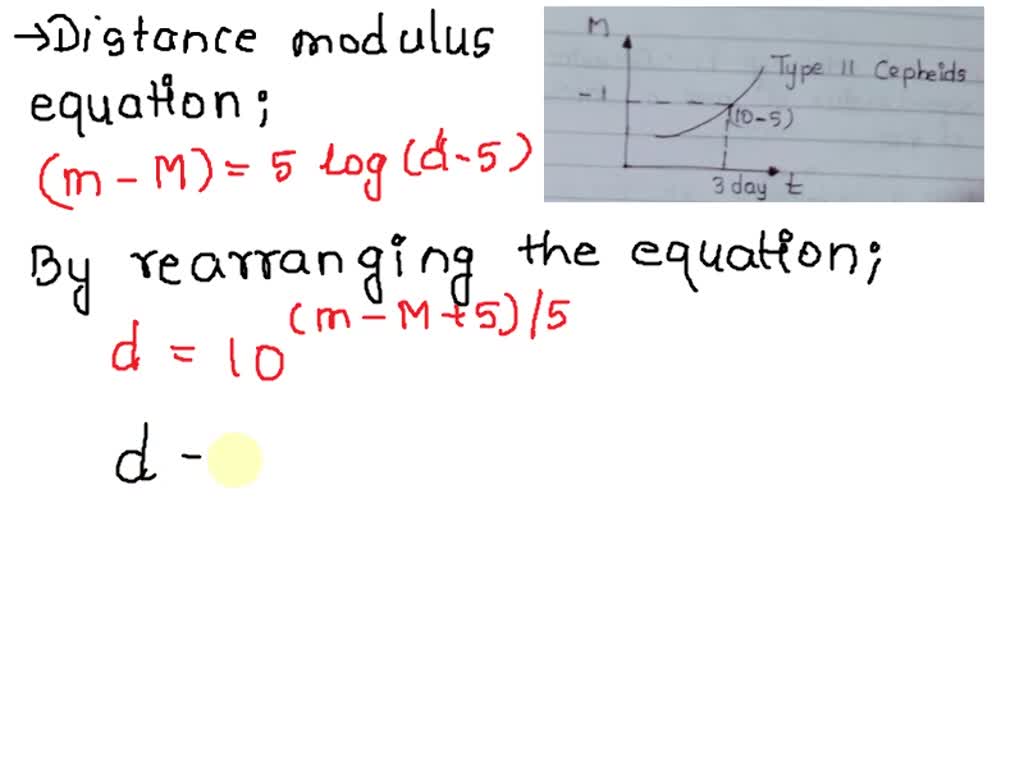 →Distance modulus
equation;
(m - M) = 5 log (d - 5)
M
-1
Type II Cepheids
(10-5)
3 day t
By rearranging the equation;
d = 10^(m - M + 5)/5
d -